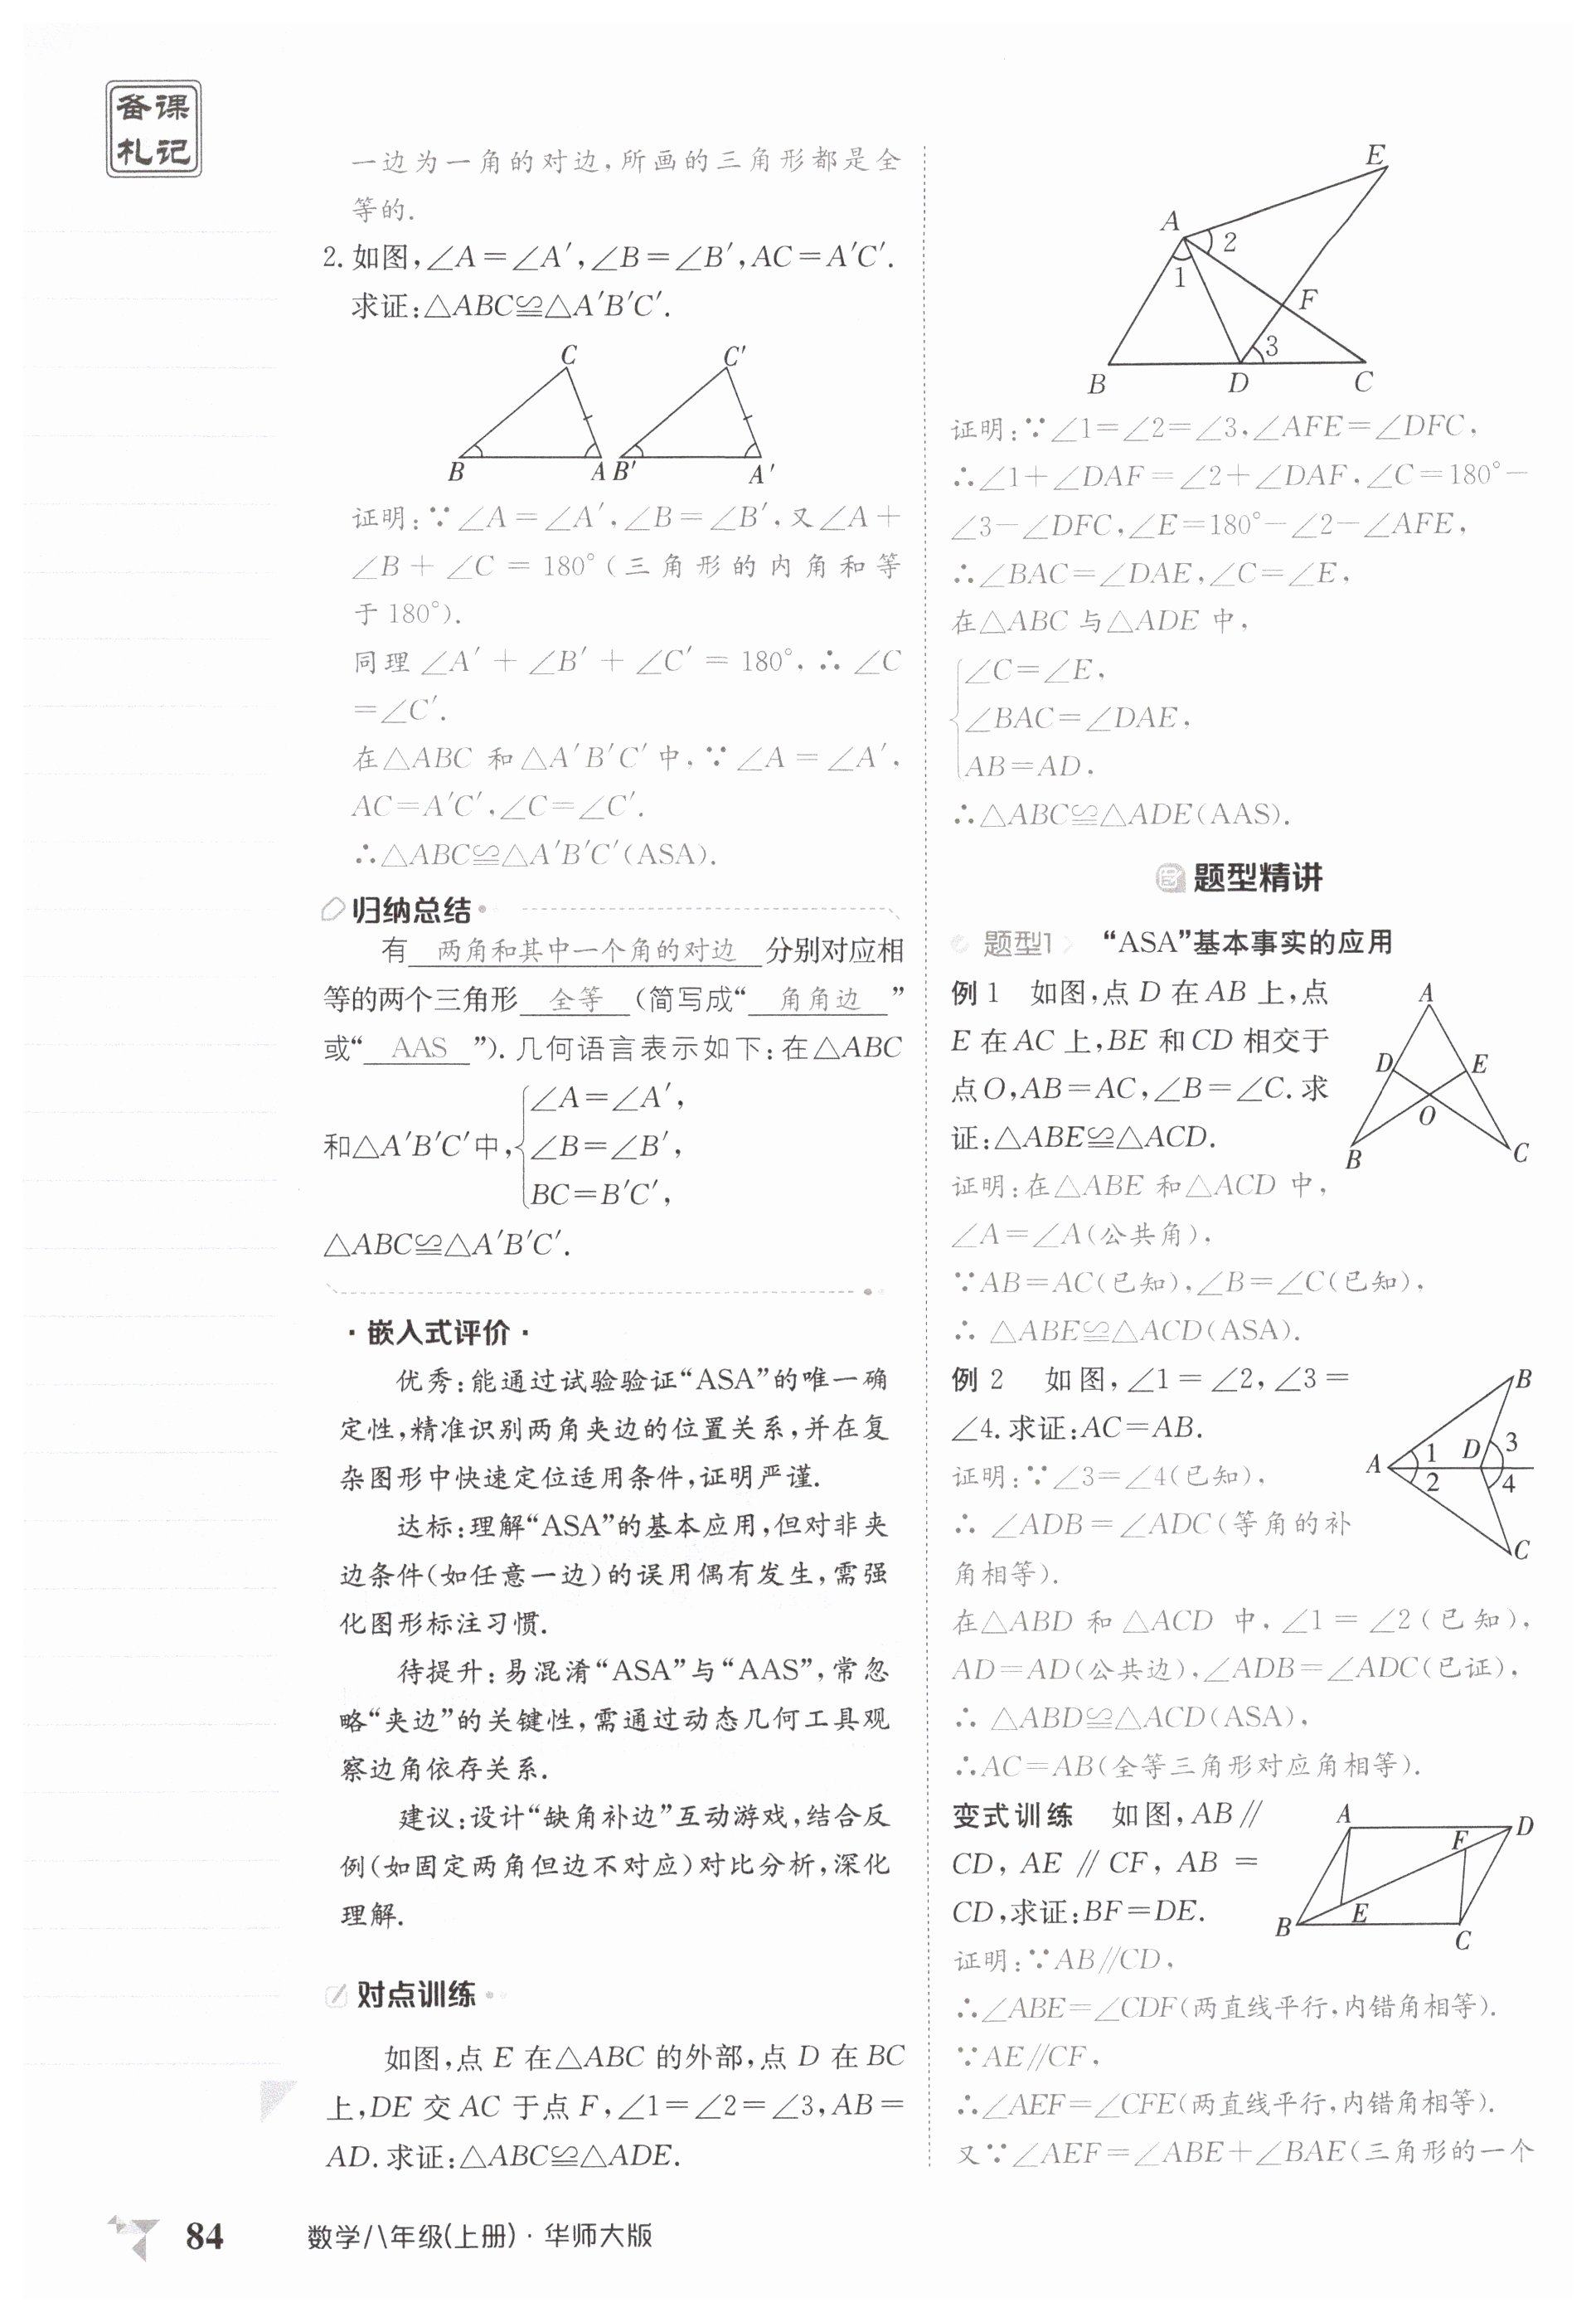 备课
札记
一边为一角的对边,所画的三角形都是全
等的.
2. 如图,∠A=∠A′,∠B=∠B′,AC=A′C′.
求证:△ABC≌△A′B′C′.
C C′
B A B′ A′
证明:∵∠A=∠A′,∠B=∠B′,又∠A+
∠B+∠C=180°(三角形的内角和等
于180°).
同理∠A′+∠B′+∠C′=180°,∴∠C
=∠C′.
在△ABC 和△A′B′C′中,∵∠A=∠A′,
AC=A′C′,∠C=∠C′.
∴△ABC≌△A′B′C′(ASA).
归纳总结
有 两角和其中一个角的对边 分别对应相
等的两个三角形 全等 (简写成“ 角角边 ”
或“ AAS ”).几何语言表示如下:在△ABC
∠A=∠A′,
和△A′B′C′中,∠B=∠B′,
BC=B′C′,
△ABC≌△A′B′C′.
·嵌入式评价·
优秀:能通过试验验证“ASA”的唯一确
定性,精准识别两角夹边的位置关系,并在复
杂图形中快速定位适用条件,证明严谨.
达标:理解“ASA”的基本应用,但对非夹
边条件(如任意一边)的误用偶有发生,需强
化图形标注习惯.
待提升:易混淆“ASA”与“AAS”,常忽
略“夹边”的关键性,需通过动态几何工具观
察边角依存关系.
建议:设计“缺角补边”互动游戏,结合反
例(如固定两角但边不对应)对比分析,深化
理解.
对点训练
如图,点 E 在△ABC 的外部,点 D 在 BC
上,DE 交 AC 于点 F,∠1=∠2=∠3,AB=
AD.求证:△ABC≌△ADE.
E
A
2
1
F
3
B D C
证明:∵∠1=∠2=∠3,∠AFE=∠DFC,
∴∠1+∠DAF=∠2+∠DAF,∠C=180°-
∠3-∠DFC,∠E=180°-∠2-∠AFE,
∴∠BAC=∠DAE,∠C=∠E,
在△ABC 与△ADE 中,
∠C=∠E,
∠BAC=∠DAE,
AB=AD,
∴△ABC≌△ADE(AAS).
题型精讲
题型1 “ASA”基本事实的应用
例 1 如图,点 D 在 AB 上,点
E 在 AC 上,BE 和 CD 相交于
点 O,AB=AC,∠B=∠C.求
证:△ABE≌△ACD.
A
D E
O
B C
证明:在△ABE 和△ACD 中,
∠A=∠A(公共角),
∵AB=AC(已知),∠B=∠C(已知),
∴ △ABE≌△ACD(ASA).
例 2 如图,∠1=∠2,∠3=
∠4.求证:AC=AB.
B
1 D 3
A
2 4
C
证明:∵∠3=∠4(已知),
∴ ∠ADB=∠ADC(等角的补
角相等).
在△ABD 和△ACD 中,∠1=∠2(已知),
AD=AD(公共边),∠ADB=∠ADC(已证),
∴ △ABD≌△ACD(ASA),
∴AC=AB(全等三角形对应角相等).
变式训练 如图,AB∥
CD,AE∥CF,AB=
CD,求证:BF=DE.
A
F D
B E
C
证明:∵AB∥CD,
∴∠ABE=∠CDF(两直线平行,内错角相等).
∵AE∥CF,
∴∠AEF=∠CFE(两直线平行,内错角相等).
又∵∠AEF=∠ABE+∠BAE(三角形的一个
84 数学八年级(上册)·华师大版